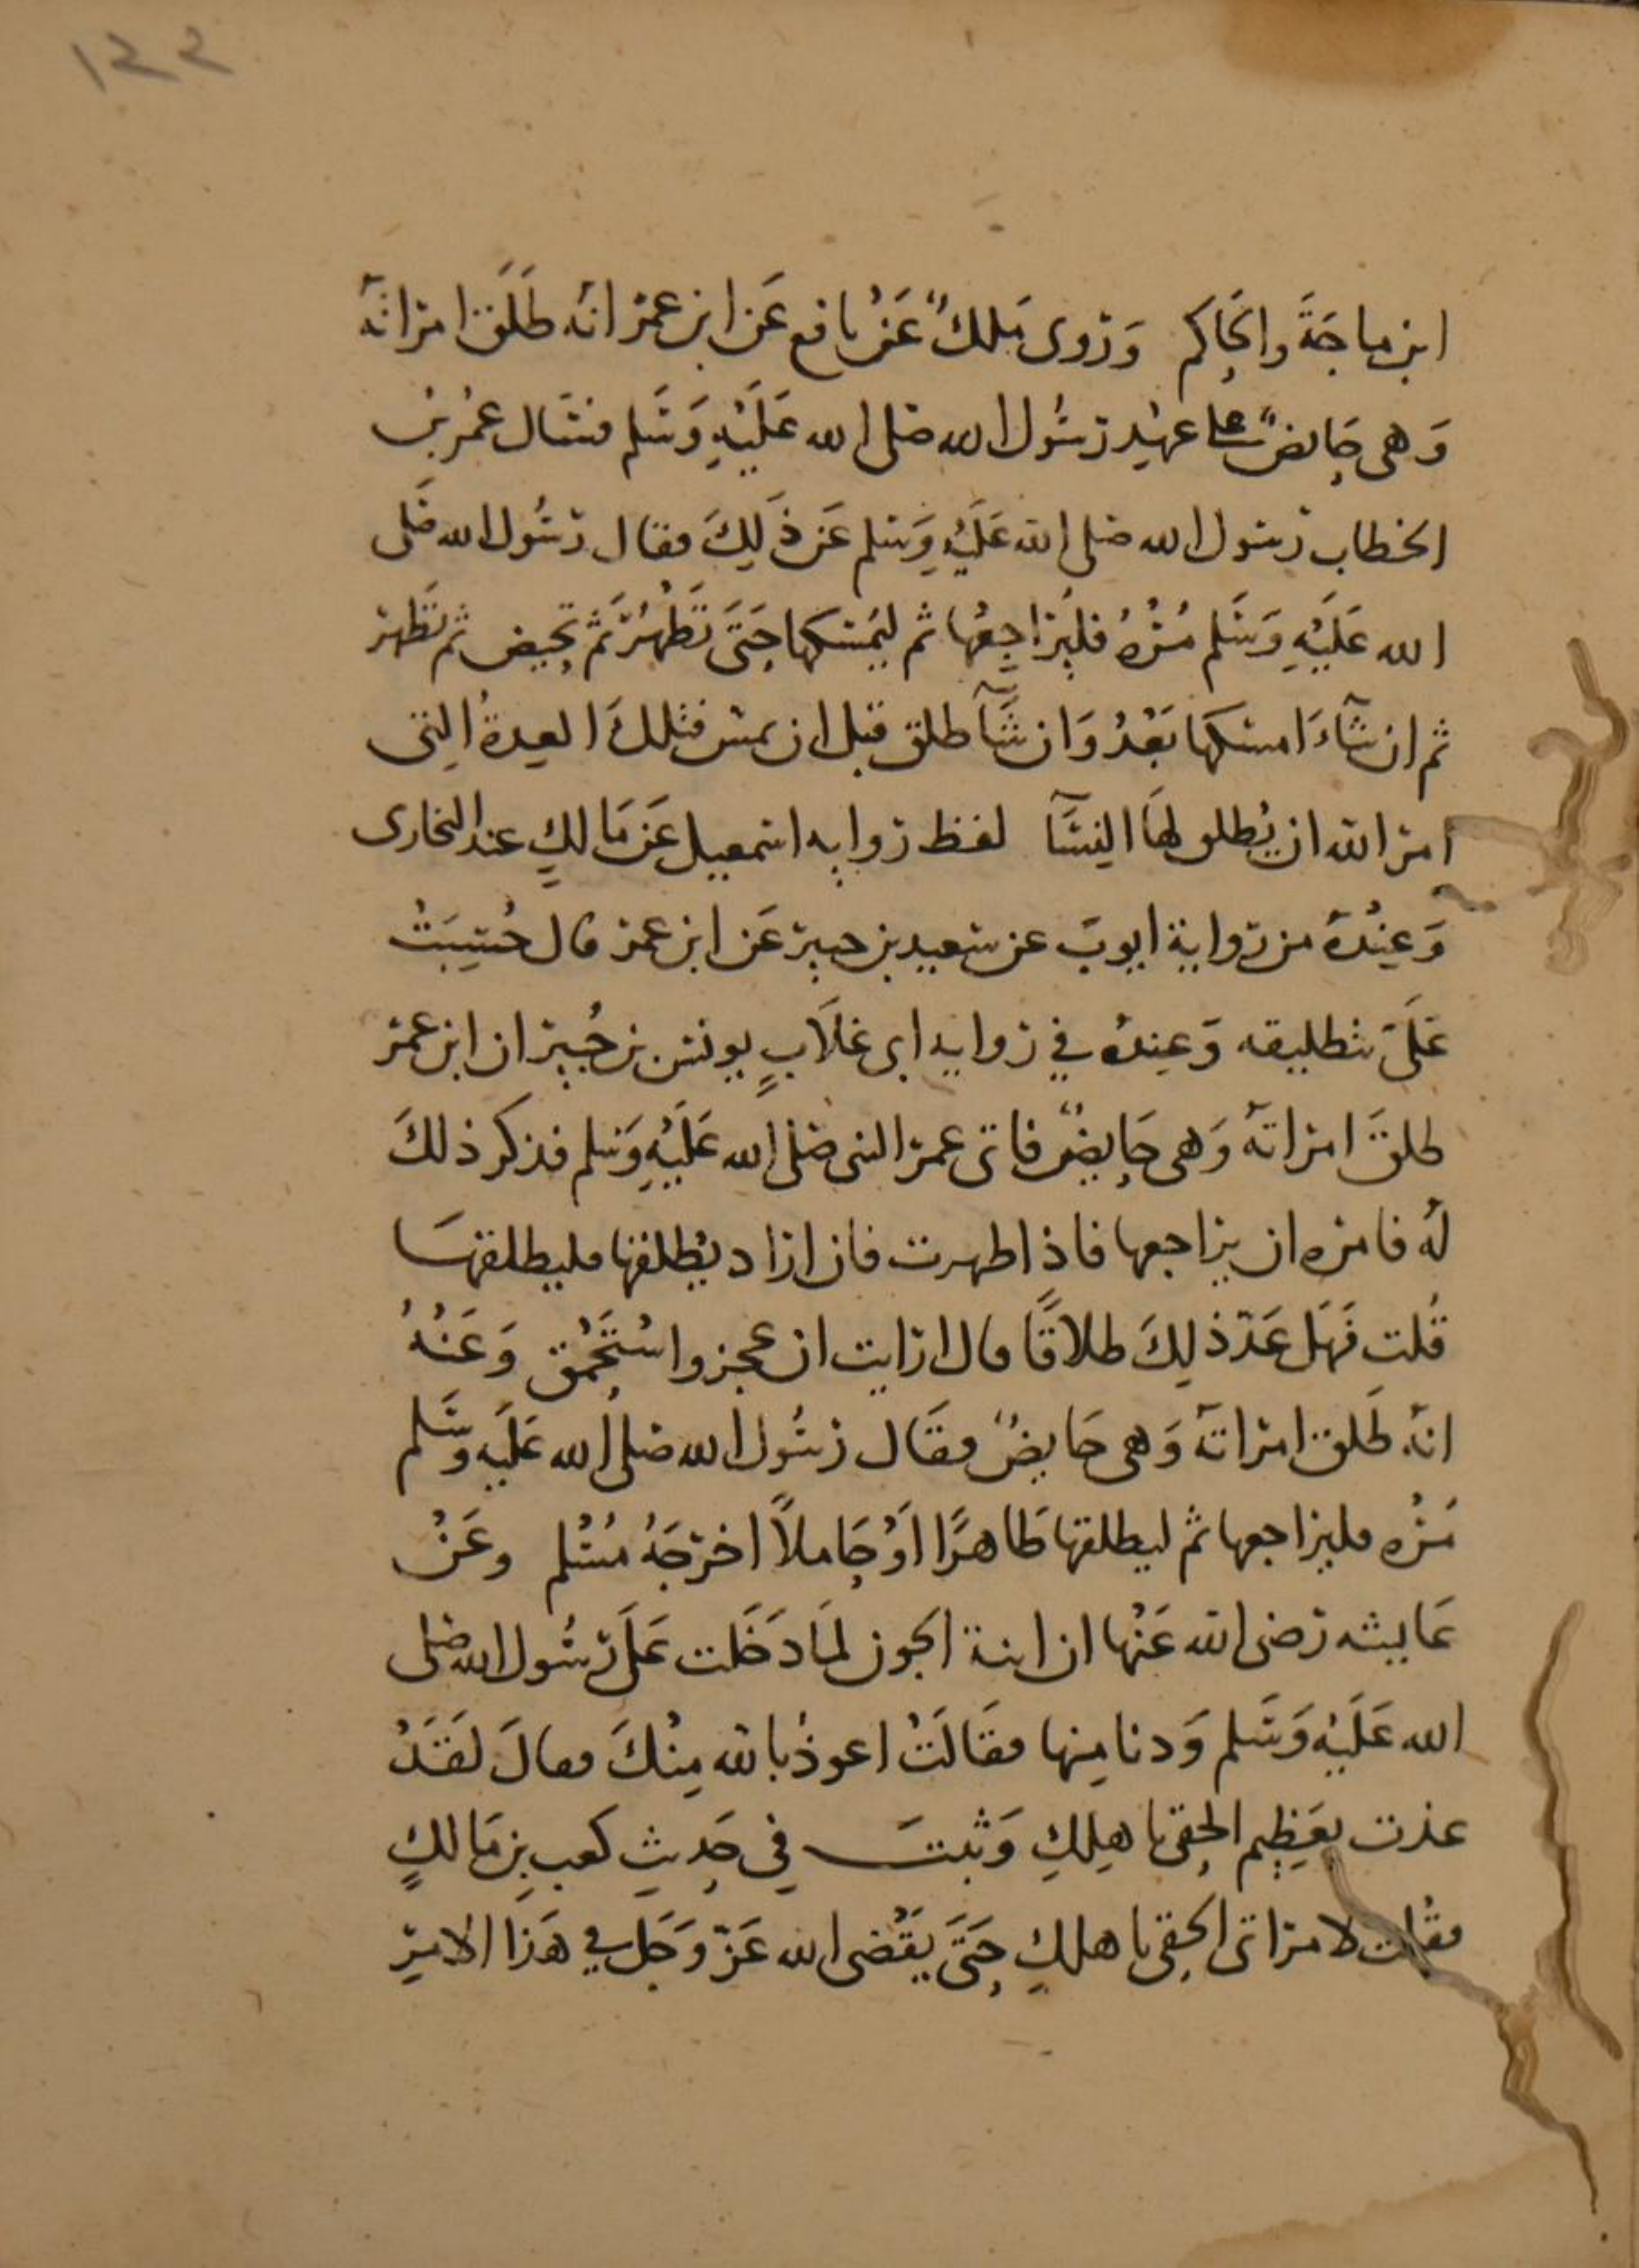 ١٤٤
ابن ماجَةَ والحَاكم وَروى مَلكٌ عَنْ نافع عَن ابن عمر انه طَلَّقَ امراته
وَهى حَايضٌ على عهْدِ رسُول الله صلى الله عَلَيْهِ وَسَلم فسَال عمُر بنُ
الخطاب رسول الله صلى الله عَلَيْهِ وَسَلم عَن ذَلِكَ فقال رسُول الله صَلى
الله عَلَيْهِ وَسَلم مُرْهُ فليُراجِعْها ثم ليُمْسكها حَتَّى تَطْهُرَ ثم تحيض ثم تَطْهر
ثم ان شآءَ امسَكهَا بَعْدُ وَان شَآ طلق قبل ان يمس فتلكَ العِدةُ التى
امر الله ان يُطلق لهَا النِسَآ لفظ رواية اسمعيل عَن مَالكٍ عند البخارى
وَعِنْدَهُ من رواية ايوبَ عن سَعيد بن جبير عَن ابن عمر قال حُسِبَتْ
عَلَىَّ بتطليقه وَعِندهُ في رواية ابى غلَابٍ يونس بن جُبير ان ابن عمر
طلقَ امراتهُ وَهى حَايضٌ فاتى عمر النبى صلى الله عَلَيْهِ وَسَلم فذكر ذلكَ
لهُ فامره ان يراجعها فاذا طهرت فان اراد يُطلقها فليطلقهَا
قُلت فَهَل عَدّ ذلِكَ طلاقًا قال ارايت ان عجز واسْتَحْمَق وَعَنْهُ
انهُ طَلق امراتهُ وَهى حَايضٌ فقَال رسُول الله صلى الله عَلَيه وسَلم
مُرْه فليراجعها ثم ليطلقها طَاهرًا اَوْ حَاملاً اخرجَهُ مُسْلم وعَنْ
عَايشه رَضى الله عَنْها ان ابنة الجون لمَا دَخَلت عَلَى رسُول الله صلى
الله عَلَيْهِ وَسَلم وَدنا مِنها فقَالَتْ اعوذُ بالله مِنْكَ فقالَ لَقَدْ
عذت بعَظِيم الحِقى باهلِكِ وَثبتَ في حَديثِ كعب بن مَالكٍ
فقلت لامراتى الحقى باهلكِ حَتَّى يَقْضى الله عَزّ وَجَل في هَذا الامرِ